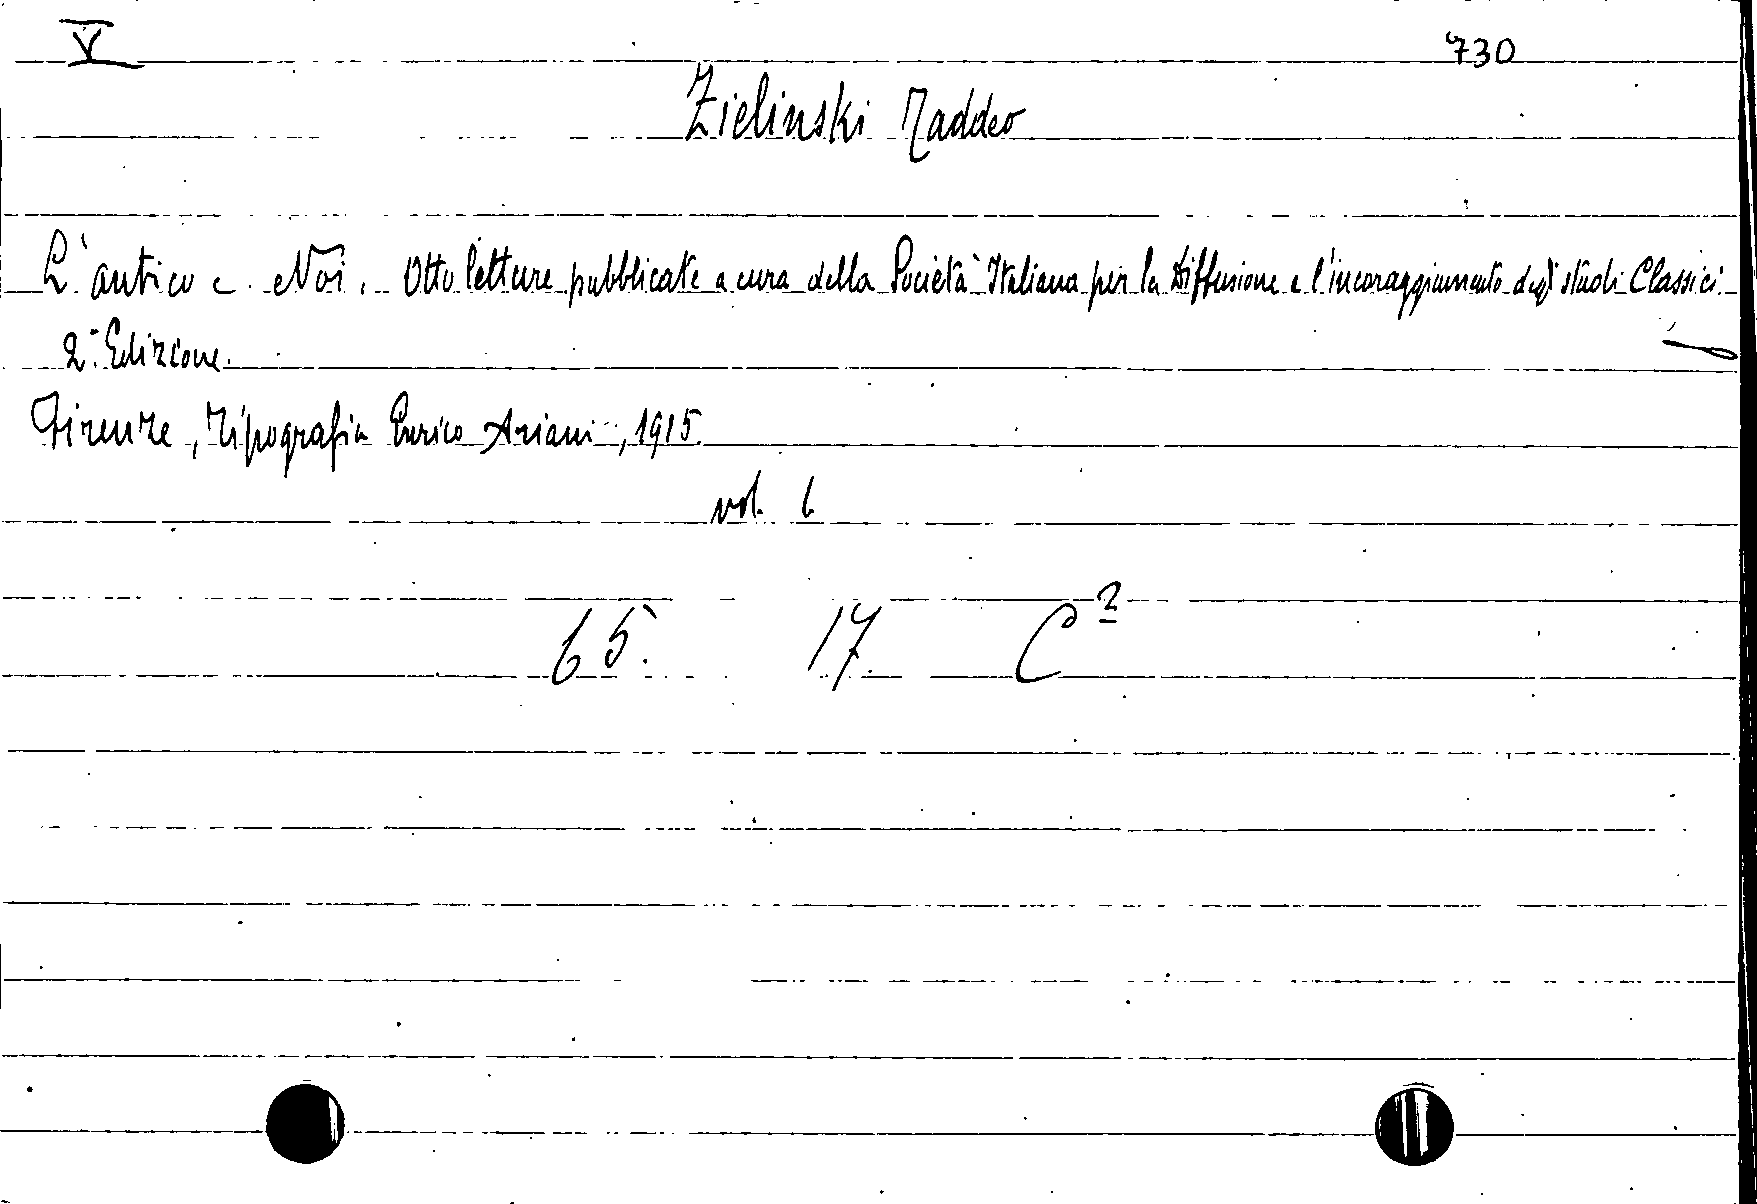 V 730
Zielinski Taddeo
L'antico e Noi. Otto letture pubblicate a cura della Società Italiana per la Diffusione e l'incoraggiamento degl' studi Classici.
2ª Edizione.
Firenze, Tipografia Enrico Ariani, 1915.
vol. 1.
65. 17. C²